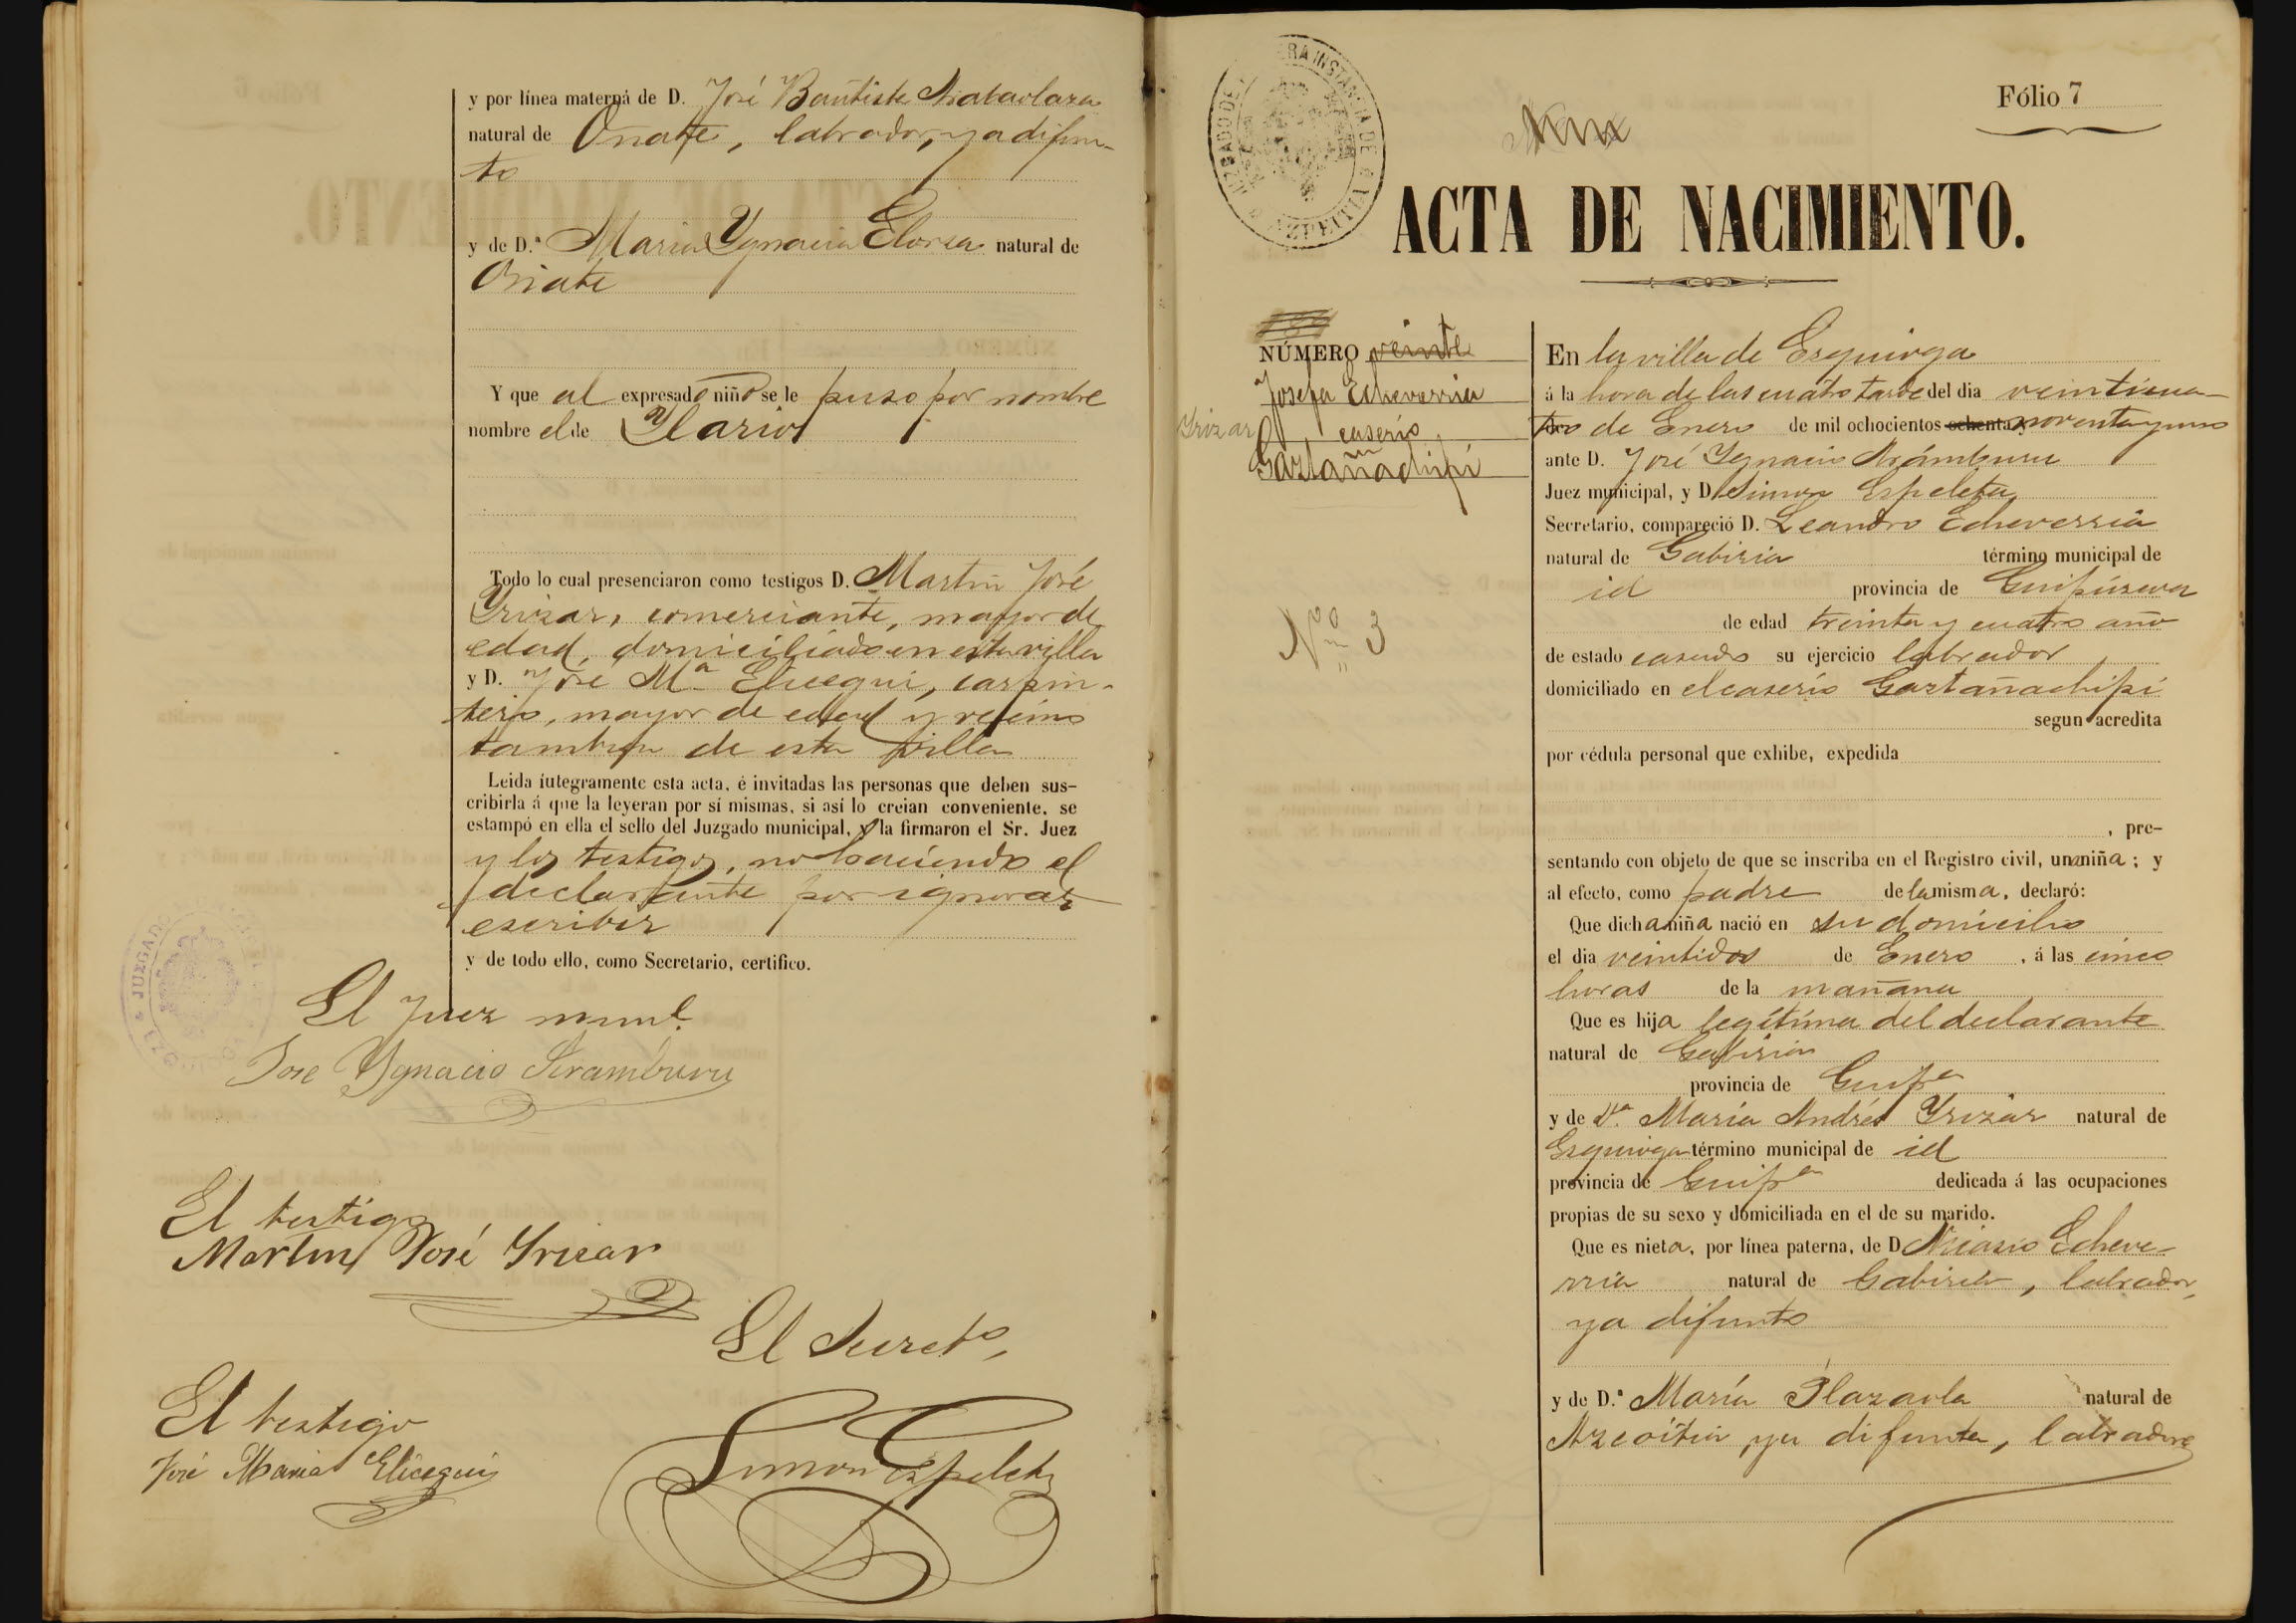 y por línea materna de D. José Bautista
natural de Oñate, labrador, ya difun-
to
y de D.ª Maria Ygnacia Elorza natural de
Oñate
Y que al expresado niño se le puso por nombre
nombre el de Ylario
Todo lo cual presenciaron como testigos D. Martin José
Yrizar, comerciante, mayor de
edad, domiciliado en esta villa
y D. José Mª Elicegui, carpin-
tero, mayor de edad y vecino
tambien de esta villa
Leida íntegramente esta acta, é invitadas las personas que deben sus-
cribirla á que la leyeran por sí mismas, si así lo creian conveniente, se
estampó en ella el sello del Juzgado municipal, y la firmaron el Sr. Juez
y los testigos, no haciendo el
declarante por ignorar
escribir
y de todo ello, como Secretario, certifico.
El Juez munl.
Jose Ygnacio Aramburu
El testigo
Martin José Yrizar
El Secreto,
El testigo
José Maria Elicegui
Simon Espeleta
Fólio 7
ACTA DE NACIMIENTO.
NÚMERO veinte
Josefa Echeverria
Yrizar
caserío
Gaztañachipi
Nº 3
En la villa de Ezquioga
á la hora de las cuatro tarde del dia veinticua-
tro de Enero de mil ochocientos ochenta y noventa y uno
ante D. José Ygnacio Arámburu
Juez municipal, y D. Simon Espeleta
Secretario, compareció D. Leandro Echeverria
natural de Gabiria término municipal de
id provincia de Guipúzcoa
de edad treinta y cuatro año
de estado casado su ejercicio labrador
domiciliado en el caserío Gaztañachipi
segun acredita
por cédula personal que exhibe, expedida
, pre-
sentando con objeto de que se inscriba en el Registro civil, una niña ; y
al efecto, como padre de la misma, declaró:
Que dicha niña nació en su domicilio
el dia veintidos de Enero , á las cinco
horas de la mañana
Que es hija legítima del declarante
natural de Gabiria
provincia de Guipª
y de Dª. María Andrés Yrizar natural de
Ezquioga término municipal de id
provincia de Guipª dedicada á las ocupaciones
propias de su sexo y domiciliada en el de su marido.
Que es nieta, por línea paterna, de D. Nicasio Echeve-
rria natural de Gabiria, labrador,
ya difunto
y de D.ª María Plazaola natural de
Azcoitia, ya difunta, labradora